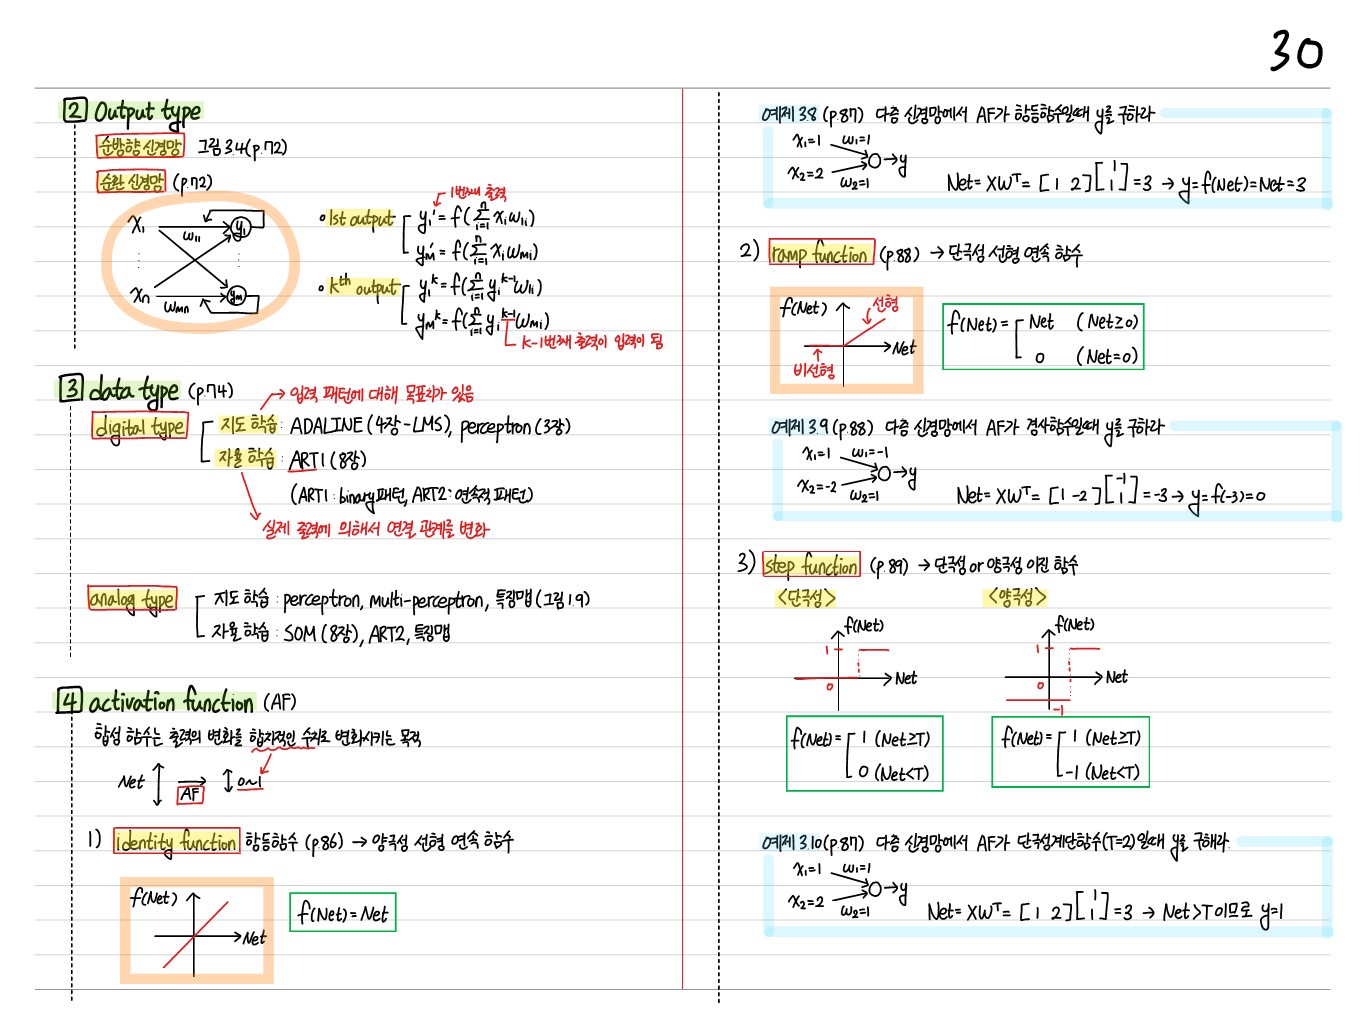 30
2 Output type
순방향 신경망 그림 3.4(p.72)
순환 신경망 (p.72)
x₁ w₁₁ y₁
xn wmn ym
1번째 출력
• 1st output y₁' = f(Σⁿᵢ₌₁ xᵢw₁ᵢ)
ym' = f(Σⁿᵢ₌₁ xᵢwmᵢ)
• kth output y₁ᵏ = f(Σⁿᵢ₌₁ yᵢᵏ⁻¹w₁ᵢ)
ymᵏ = f(Σⁿᵢ₌₁ yᵢᵏ⁻¹wmᵢ)
k-1번째 출력이 입력이 됨
3 data type (p.74)
→ 입력 패턴에 대해 목표치가 있음
digital type
지도 학습 : ADALINE (4장-LMS), perceptron (3장)
자율 학습 : ART1 (8장)
(ART1 : binary패턴, ART2 : 연속적 패턴)
→ 실제 출력에 의해서 연결 관계를 변화
analog type
지도 학습 : perceptron, multi-perceptron, 특징맵 (그림 1.9)
자율 학습 : SOM (8장), ART2, 특징맵
4 activation function (AF)
합성 함수는 출력의 변화를 합지적인 수치로 변화시키는 목적
Net ↕ → AF ↕ 0~1
1) identity function 항등함수 (p.86) → 양극성 선형 연속 함수
f(Net)
Net
f(Net) = Net
예제 3.8 (p.87) 다층 신경망에서 AF가 항등함수일때 y를 구하라
x₁=1 w₁=1
→y
x₂=2 w₂=1
Net = XWᵀ = [1 2][1 1] = 3 → y = f(Net) = Net = 3
2) ramp function (p.88) → 단극성 선형 연속 함수
f(Net) 선형
Net
비선형
f(Net) = Net (Net≥0)
0 (Net=0)
예제 3.9 (p.88) 다층 신경망에서 AF가 경사함수일때 y를 구하라
x₁=1 w₁=-1
→y
x₂=-2 w₂=1
Net = XWᵀ = [1 -2][-1 1] = -3 → y = f(-3) = 0
3) step function (p.89) → 단극성 or 양극성 이진 함수
<단극성> <양극성>
f(Net) 1 0 Net
f(Net) 1 0 -1 Net
f(Net) = 1 (Net≥T)
0 (Net<T)
f(Net) = 1 (Net≥T)
-1 (Net<T)
예제 3.10 (p.87) 다층 신경망에서 AF가 단극성계단함수(T=2)일때 y를 구해라
x₁=1 w₁=1
→y
x₂=2 w₂=1
Net = XWᵀ = [1 2][1 1] = 3 → Net>T 이므로 y=1